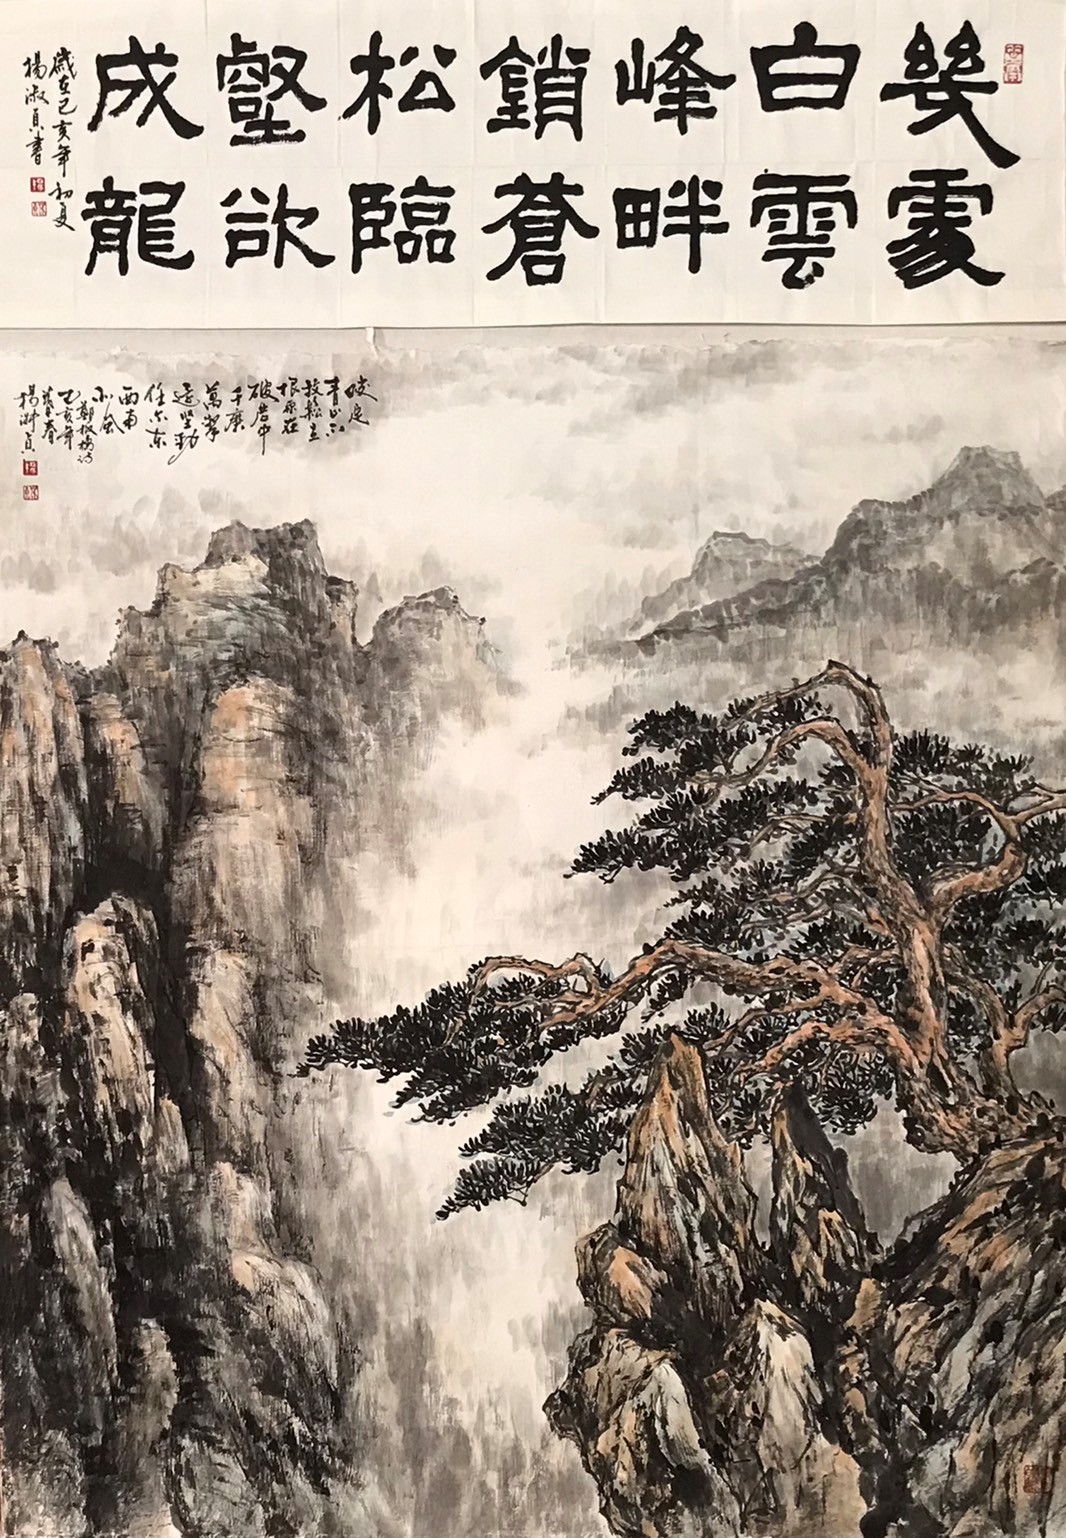 幾處
白雲
峰畔
鎖蒼
松臨
壑欲
成龍
歲在己亥年初夏
楊淑貞書
咬定
青山不
放鬆立
根原在
破岩中
千磨
萬擊
還坚勁
任尔東
西南
北風
鄭板橋詩
己亥年
暮春
楊淑貞